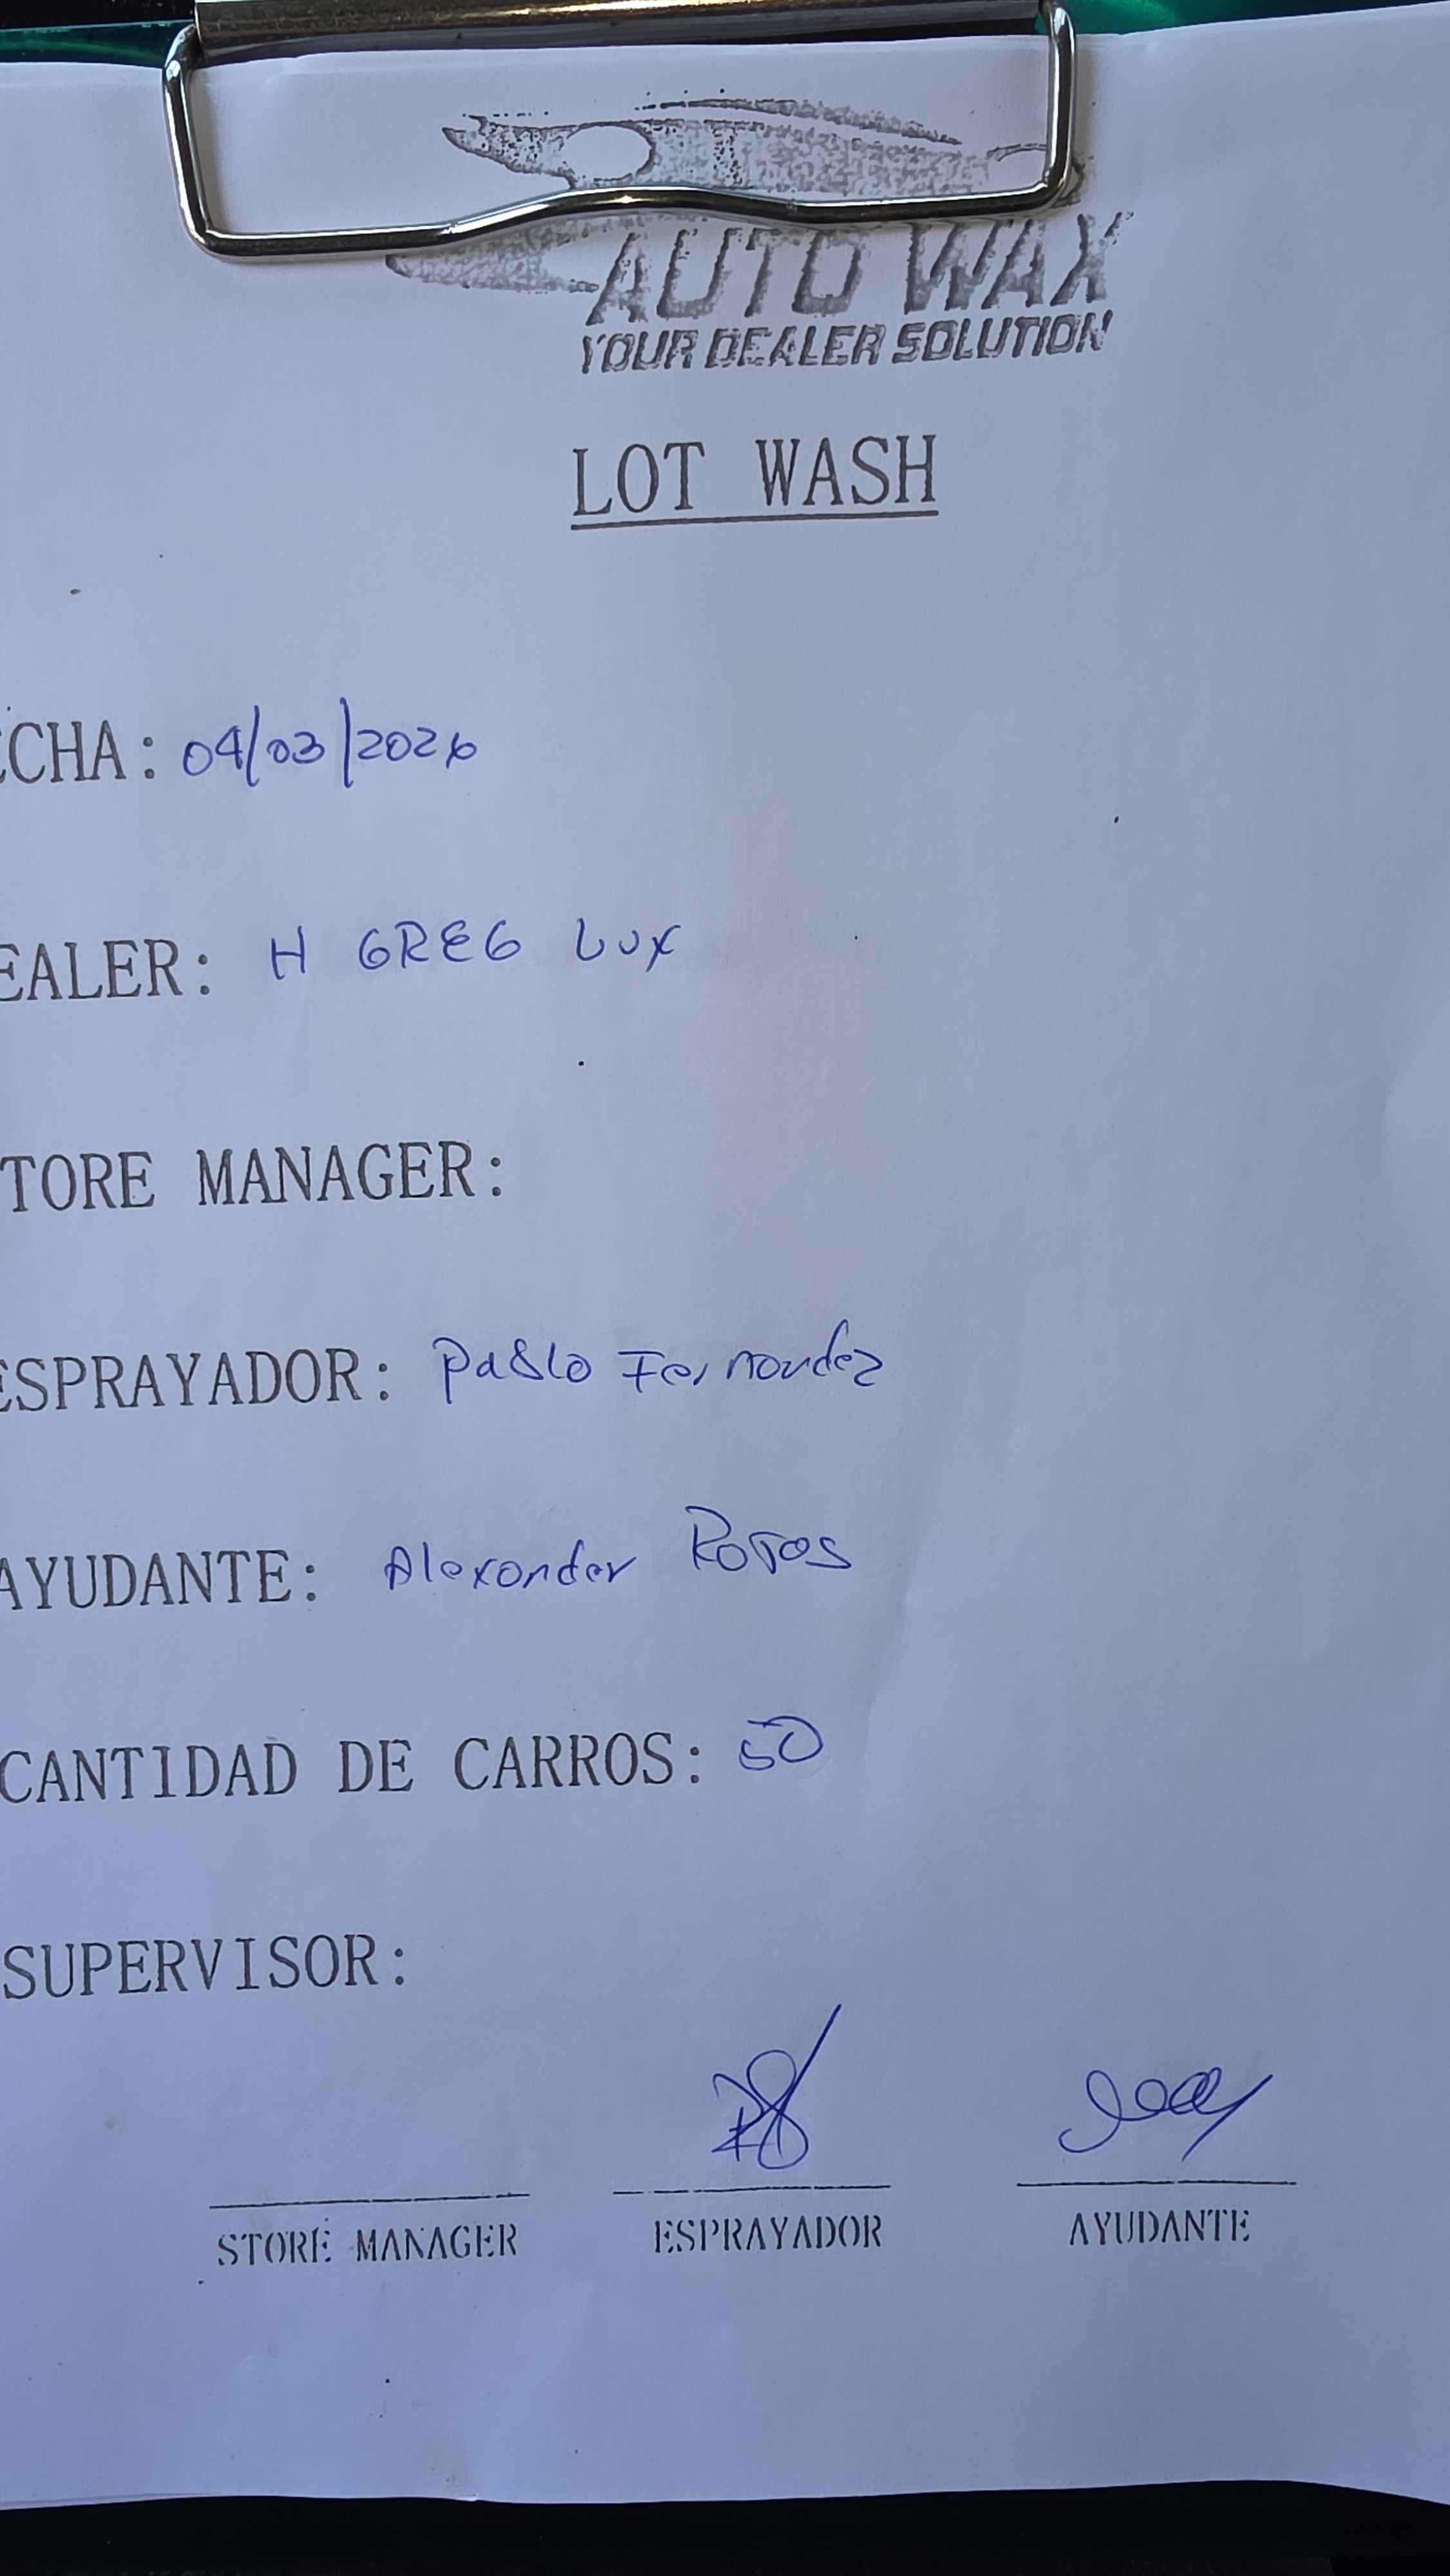 AUTO WAX
YOUR DEALER SOLUTION
LOT WASH
ECHA: 04/03/2026
EALER: H GREG LUX
TORE MANAGER:
ESPRAYADOR: Pablo Fernandez
AYUDANTE: Alexander Rojas
CANTIDAD DE CARROS: 50
SUPERVISOR:
STORE MANAGER ESPRAYADOR AYUDANTE